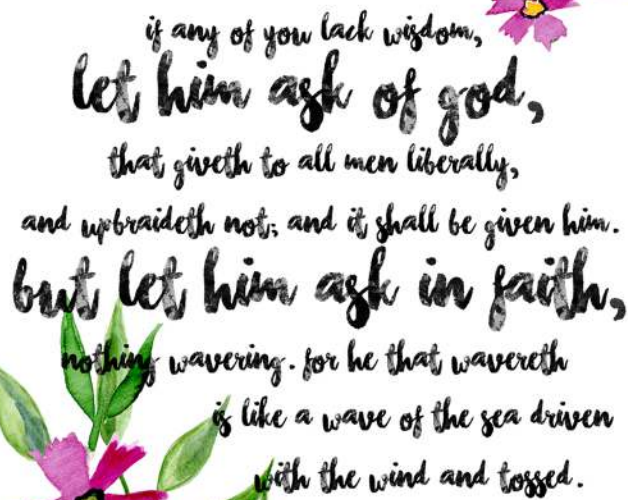 if any of you lack wisdom,
let him ask of god,
that giveth to all men liberally,
and upbraideth not; and it shall be given him.
but let him ask in faith,
nothing wavering. for he that wavereth
is like a wave of the sea driven
with the wind and tossed.